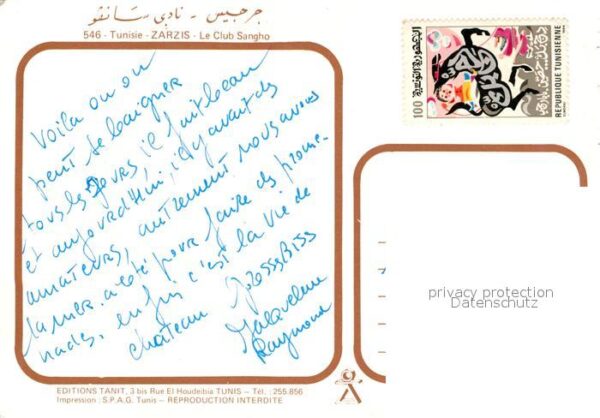 جرجيس - نادي سانغو
546 - Tunisie - ZARZIS - Le Club Sangho
Voila ou on
peut se baigner
tous les jours il fait beau
et aujourd'hui, il y avait des
amateurs, autrement nous avons
la mer a côté pour faire des prome-
nades, enfin c'est la vie de
château Grosses Biss
Jacqueline
Raymond
100
الجمهورية التونسية
REPUBLIQUE TUNISIENNE
privacy protection
Datenschutz
EDITIONS TANIT, 3 bis Rue El Houdeibia TUNIS - Tél. : 255.856
Impression : S.P.A.G. Tunis - REPRODUCTION INTERDITE